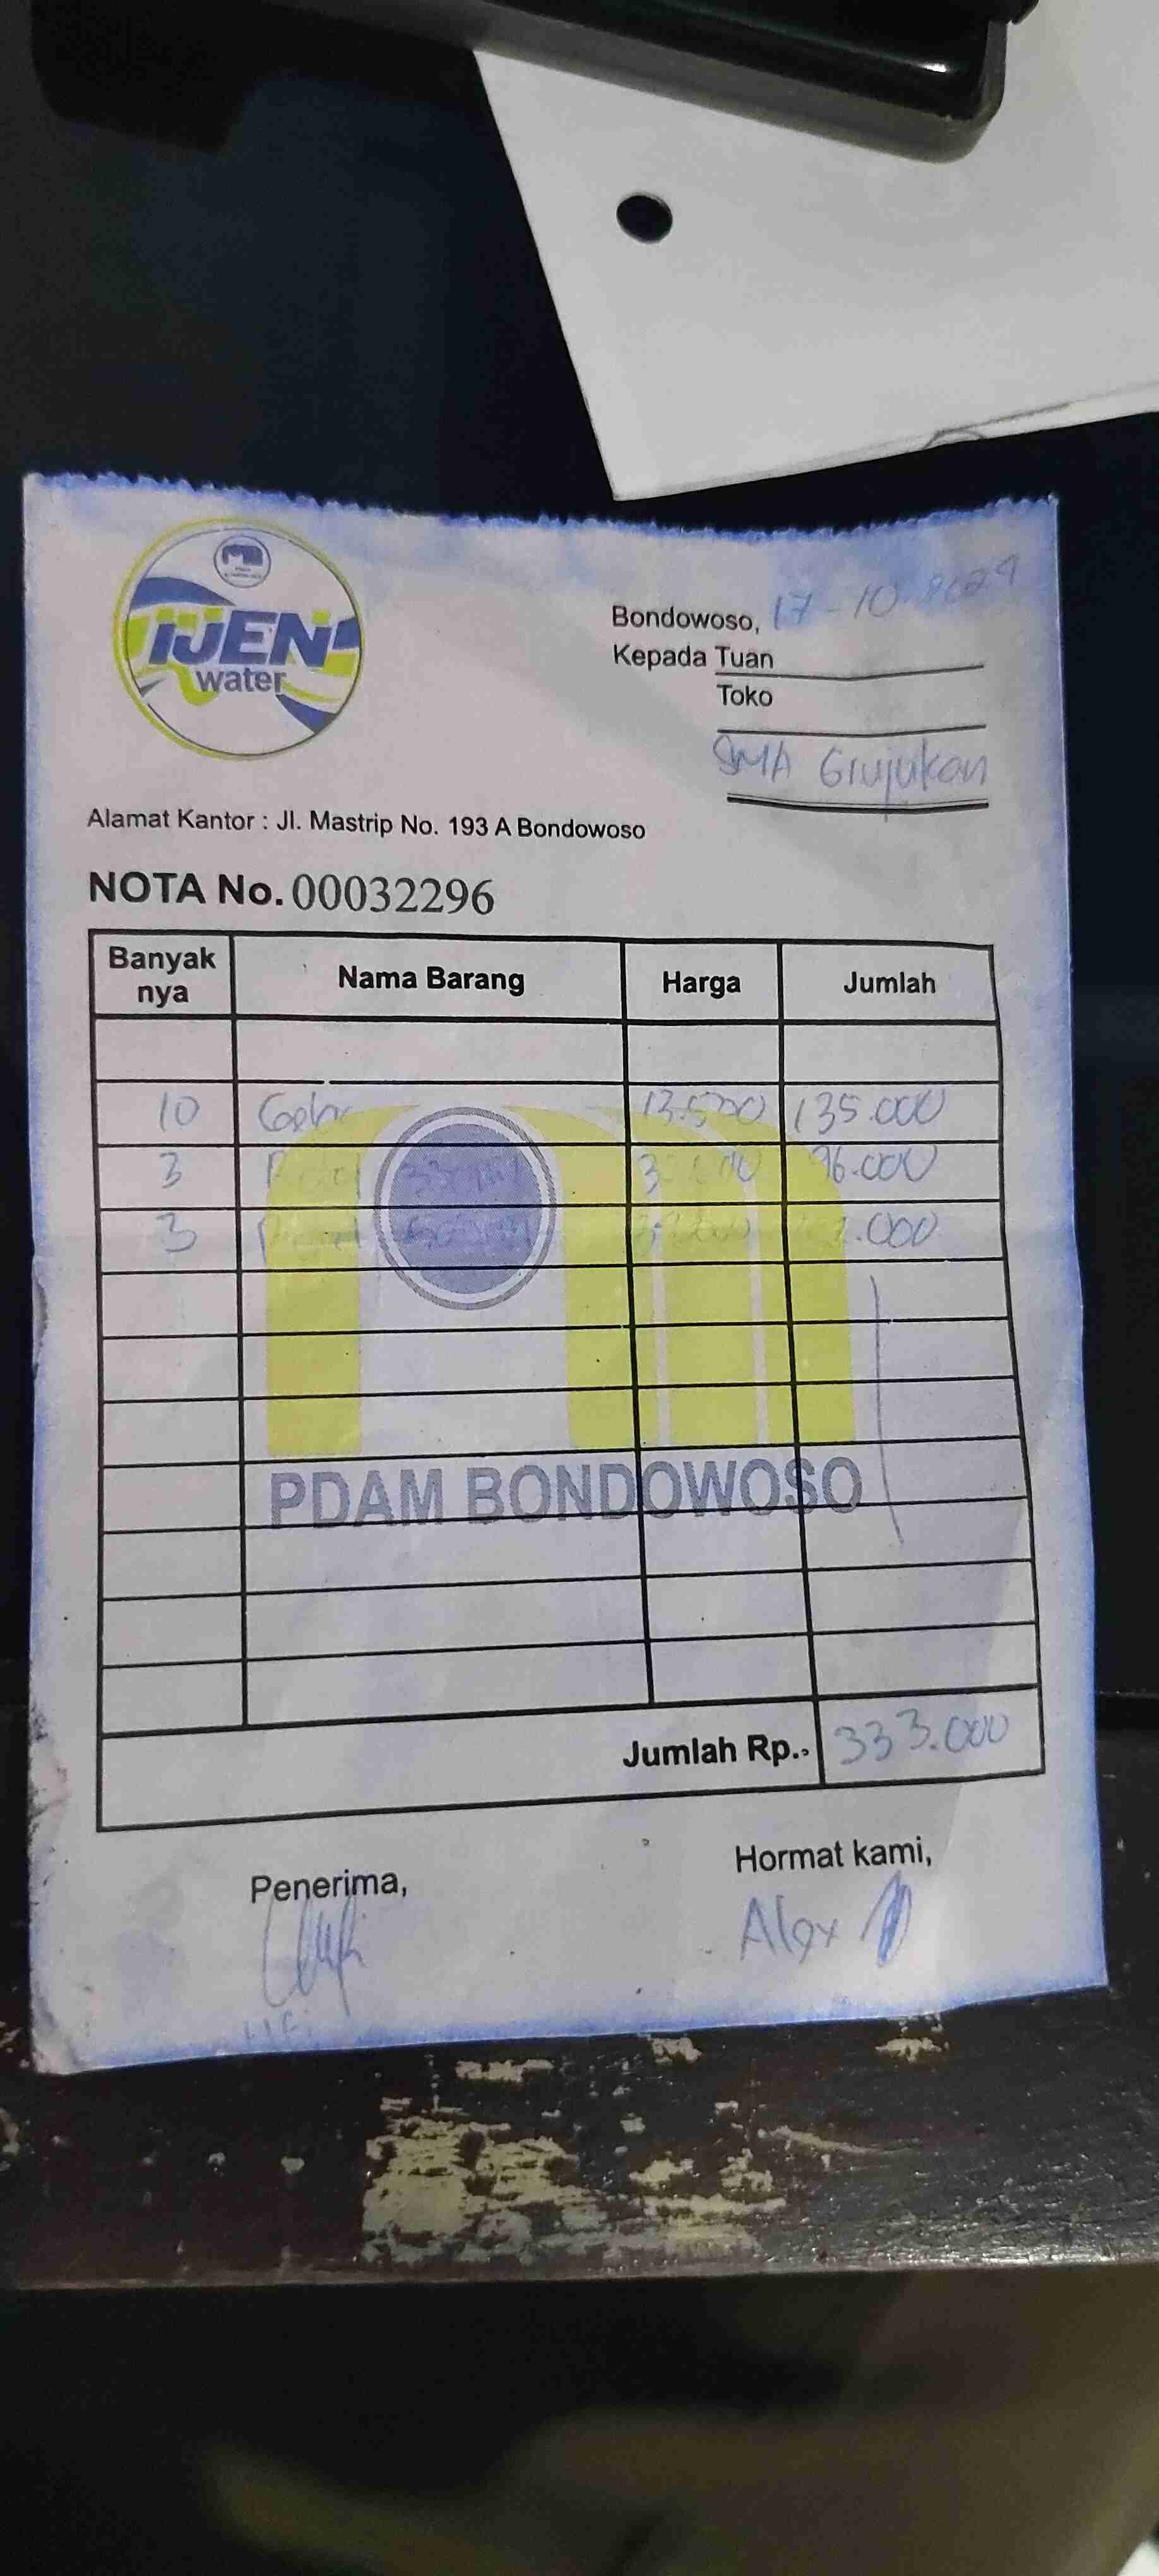 IJEN
water
Bondowoso, 17-10-2024
Kepada Tuan
Toko
SMA Grujukan
Alamat Kantor : Jl. Mastrip No. 193 A Bondowoso
NOTA No. 00032296
Banyak nya Nama Barang Harga Jumlah
10 13.500 135.000
3 330 ml 96.000
3 .000
PDAM BONDOWOSO
Jumlah Rp., 333.000
Penerima,
Hormat kami,
Alex